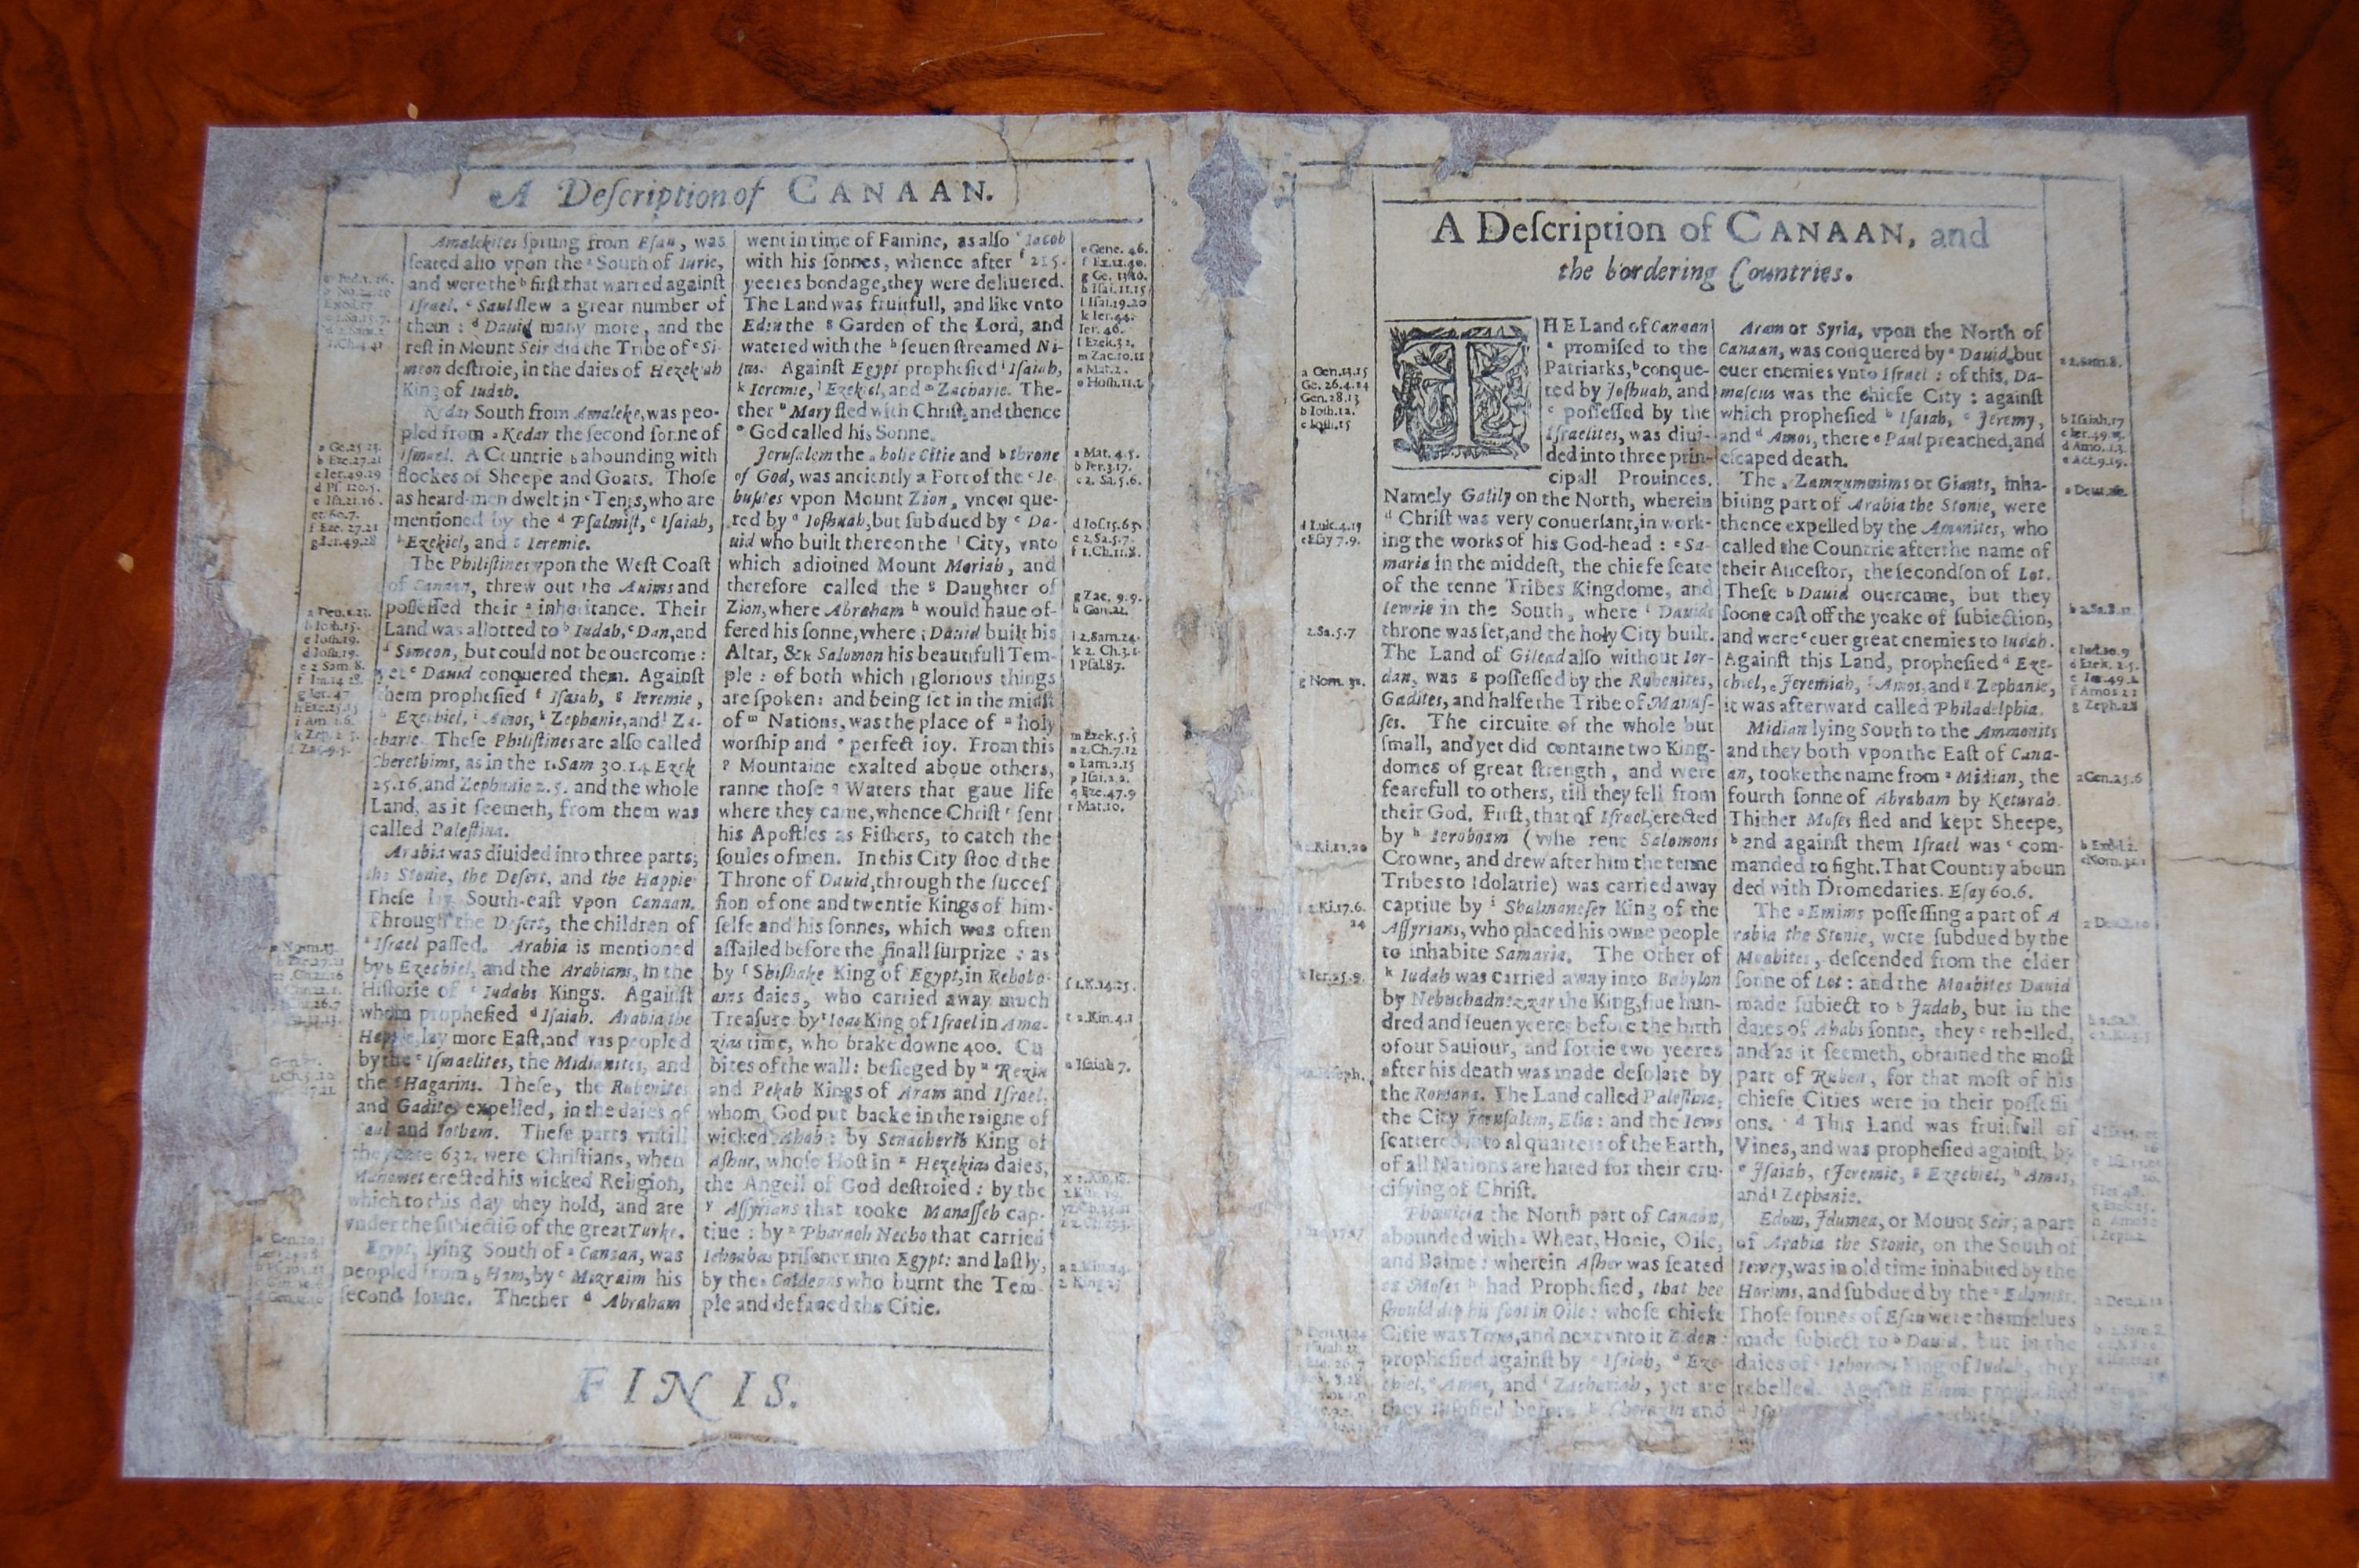 A Deſcription of CANAAN.
Amalekites ſprung from Eſau, was
ſeated alſo vpon the a South of Iurie,
and were the b firſt that warred againſt
Iſrael. c Saul ſlew a great number of
them : d Dauid many more, and the
reſt in Mount Seir did the Tribe of e Si-
meon deſtroie, in the daies of Hezekiah
King of Iudah.
Kedar South from Amaleke, was peo-
pled from a Kedar the ſecond ſonne of
Iſmael. A Countrie b abounding with
flockes of Sheepe and Goats. Thoſe
as heard-men dwelt in c Tents, who are
mentioned by the d Pſalmiſt, e Iſaiah,
Ezekiel, and g Ieremie.
The Philiſtines vpon the Weſt Coaſt
of Canaan, threw out the Auims and
poſſeſſed their a inheritance. Their
Land was allotted to b Iudah, c Dan, and
d Simeon, but could not be ouercome :
yet e Dauid conquered them. Againſt
them propheſied f Iſaiah, g Ieremie,
Ezechiel, i Amos, k Zephanie, and l Za-
charie. Theſe Philiſtines are alſo called
Cherethims, as in the 1. Sam 30.14 Ezek
25.16. and Zephanie 2.5. and the whole
Land, as it ſeemeth, from them was
called Paleſtina.
Arabia was diuided into three parts,
the Stonie, the Deſert, and the Happie
Theſe South-eaſt vpon Canaan.
Through the Deſert, the children of
a Iſrael paſſed. Arabia is mentioned
by b Ezechiel, and the Arabians, in the
Hiſtorie of c Iudahs Kings. Againſt
whom propheſied d Iſaiah. Arabia the
Happie lay more Eaſt, and was peopled
by the e Iſmaelites, the Midianites, and
the Hagarins. Theſe, the Rubenites
and Gadites expelled, in the daies of
Saul and Iotham. Theſe parts vntill
the yeare 632. were Chriſtians, when
Mahomet erected his wicked Religion,
which to this day they hold, and are
vnder the ſubiectiõ of the great Turke.
Egypt, lying South of a Canaan, was
peopled from b Ham, by c Mizraim his
ſecond ſonne. Thether d Abraham
a Ge.25 13.
b Eze.27.21
c Ier.49.29
d Pſ 120.5.
e Iſa.21.16.
f Eze. 27.21
g Ier.49.28
went in time of Famine, as alſo e Iacob
with his ſonnes, whence after f 215.
yeeres bondage, they were deliuered.
The Land was fruitfull, and like vnto
Eden the g Garden of the Lord, and
watered with the h ſeuen ſtreamed Ni-
lus. Againſt Egypt propheſied i Iſaiah,
k Ieremie, l Ezekiel, and m Zacharie. The-
ther n Mary fled with Chriſt, and thence
o God called his Sonne.
Jeruſalem the a holie Citie and b throne
of God, was anciently a Fort of the c Ie-
buſites vpon Mount Zion, vnconque-
red by d Ioſhuah, but ſubdued by e Da-
uid who built thereon the f City, vnto
which adioined Mount Moriah, and
therefore called the g Daughter of
Zion, where Abraham h would haue of-
fered his ſonne, where i Dauid built his
Altar, & k Salomon his beautifull Tem-
ple : of both which l glorious things
are ſpoken : and being ſet in the midſt
of m Nations, was the place of n holy
worſhip and o perfect ioy. From this
p Mountaine exalted aboue others,
ranne thoſe q Waters that gaue life
where they came, whence Chriſt r ſent
his Apoſtles as Fiſhers, to catch the
ſoules of men. In this City ſtood the
Throne of Dauid, through the ſucceſ
ſion of one and twentie Kings of him-
ſelfe and his ſonnes, which was often
aſſailed before the finall ſurprize : as
by ſ Shiſhake King of Egypt, in Rehobo-
ams daies, who carried away much
Treaſure by t Ioas King of Iſrael in Ama-
zias time, who brake downe 400. Cu
bites of the wall : beſieged by u Rezin
and Pekah Kings of Aram and Iſrael,
whom God put backe in the raigne of
wicked Ahab : by Senacherib King of
Aſhur, whoſe Hoſt in x Hezekias daies,
the Angell of God deſtroied : by the
y Aſſyrians that tooke Manaſſeh cap-
tiue : by z Pharaoh Necho that carried
Iehoahas priſoner into Egypt : and laſtly,
by the a Caldeans who burnt the Tem-
ple and defaced the Citie.
e Gene. 46.
f Ex.12.40.
g Ge. 13.10.
h Iſai.11.15
i Iſai.19.20
k Ier.44.
Ier. 46.
l Ezek.32.
m Zac.10.11
n Mat.2.
o Hoſh.11.1.
a Mat.4.5.
b Ier.3.17.
c 2. Sa.5.6.
d Ioſ.15.63.
e 2.Sa.5.7.
f 1.Ch.11.8.
g Zac. 9.9.
h Gen.22.
i 2.Sam.24.
k 2. Ch.3.1.
l Pſal.87.
m Ezek.5.5
n 2.Ch.7.12
o Lam.2.15
p Iſai.2.2.
q Eze.47.9
r Mat.10.
ſ 1.K.14.25.
t 2.Kin.4.1
u Iſaiah 7.
FINIS.
A Deſcription of CANAAN, and
the bordering Countries.
THE Land of Canaan
a promiſed to the
Patriarks, b conque-
red by Joſhuah, and
c poſſeſſed by the
Iſraelites, was diui-
ded into three prin-
cipall Prouinces.
Namely Galily on the North, wherein
d Chriſt was very conuerſant, in work-
ing the works of his God-head : e Sa-
maria in the middeſt, the chiefe ſeate
of the tenne Tribes Kingdome, and
Iewrie in the South, where f Dauids
throne was ſet, and the holy City built.
The Land of Gilead alſo without Ior-
dan, was g poſſeſſed by the Rubenites,
Gadites, and halfe the Tribe of Manaſ-
ſes. The circuite of the whole but
ſmall, and yet did containe two King-
domes of great ſtrength, and were
fearefull to others, till they fell from
their God. Firſt, that of Iſrael, erected
by h Ieroboam (who rent Salomons
Crowne, and drew after him the tenne
Tribes to Idolatrie) was carried away
captiue by i Shalmaneſer King of the
Aſſyrians, who placed his owne people
to inhabite Samaria. The other of
k Iudah was carried away into Babylon
by Nebuchadnezzar the King, fiue hun-
dred and ſeuen yeeres before the birth
of our Sauiour, and fortie two yeeres
after his death was made deſolate by
the Romans. The Land called Paleſtina,
the City Jeruſalem, Elia : and the Iews
ſcattered into al quarters of the Earth,
of all Nations are hated for their cru-
cifying of Chriſt.
Phœnicia the North part of Canaan,
abounded with a Wheat, Honie, Oile,
and Balme : wherein Aſher was ſeated
as Moſes b had Propheſied, that hee
ſhould dip his foot in Oile : whoſe chiefe
Citie was Tyrus, and next vnto it Ziden :
propheſied againſt by c Iſaiah, d Eze-
chiel, e Amos, and f Zachariah, yet are
they iuſtified before Chorazin and
a Gen.13.15
Ge. 26.4.24
Gen.28.13
b Ioſh.12.
c Ioſh.15
d Luk.4.15
e Eſay 7.9.
2.Sa.5.7
g Nom. 32.
k Ier.25.9.
Aram or Syria, vpon the North of
Canaan, was conquered by a Dauid, but
euer enemies vnto Iſrael : of this, Da-
maſcus was the chiefe City : againſt
which propheſied b Iſaiah, c Jeremy,
and d Amos, there e Paul preached, and
eſcaped death.
The a Zamzummims or Giants, inha-
biting part of Arabia the Stonie, were
thence expelled by the Amonites, who
called the Countrie after the name of
their Anceſtor, the ſecond ſon of Lot.
Theſe b Dauid ouercame, but they
ſoone caſt off the yoake of ſubiection,
and were c euer great enemies to Iudah.
Againſt this Land, propheſied d Eze-
chiel, e Jeremiah, f Amos, and g Zephanie,
it was afterward called Philadelphia.
Midian lying South to the Ammonits
and they both vpon the Eaſt of Cana-
an, tooke the name from a Midian, the
fourth ſonne of Abraham by Keturah.
Thither Moſes fled and kept Sheepe,
b and againſt them Iſrael was c com-
manded to fight. That Country aboun
ded with Dromedaries. Eſay 60.6.
The a Emims poſſeſſing a part of A
rabia the Stonie, were ſubdued by the
Moabites, deſcended from the elder
ſonne of Lot : and the Moabites Dauid
made ſubiect to b Judah, but in the
daies of Ahabs ſonne, they c rebelled,
and as it ſeemeth, obtained the moſt
part of Ruben, for that moſt of his
chiefe Cities were in their poſſeſſi
ons. d This Land was fruitfull of
Vines, and was propheſied againſt, by
e Iſaiah, f Jeremie, g Ezechiel, h Amos,
and i Zephanie.
Edom, Idumea, or Mount Seir, a part
of Arabia the Stonie, on the South of
Iewry, was in old time inhabited by the
Horims, and ſubdued by the a Edomits.
Thoſe ſonnes of Eſau were themſelues
made ſubiect to b Dauid, but in the
daies of Iehoram King of Iudah, they
rebelled. Againſt
a 2.Sam.8.
b Iſaiah.17
c Ier.49
d Amo. 1.3.
e Act.9.19.
c Iud.10.9
d Ezek. 25.
e Ier.49.1
g Zeph.2.8
a Gen.25.6
b Exod.2.
c Nom.31.